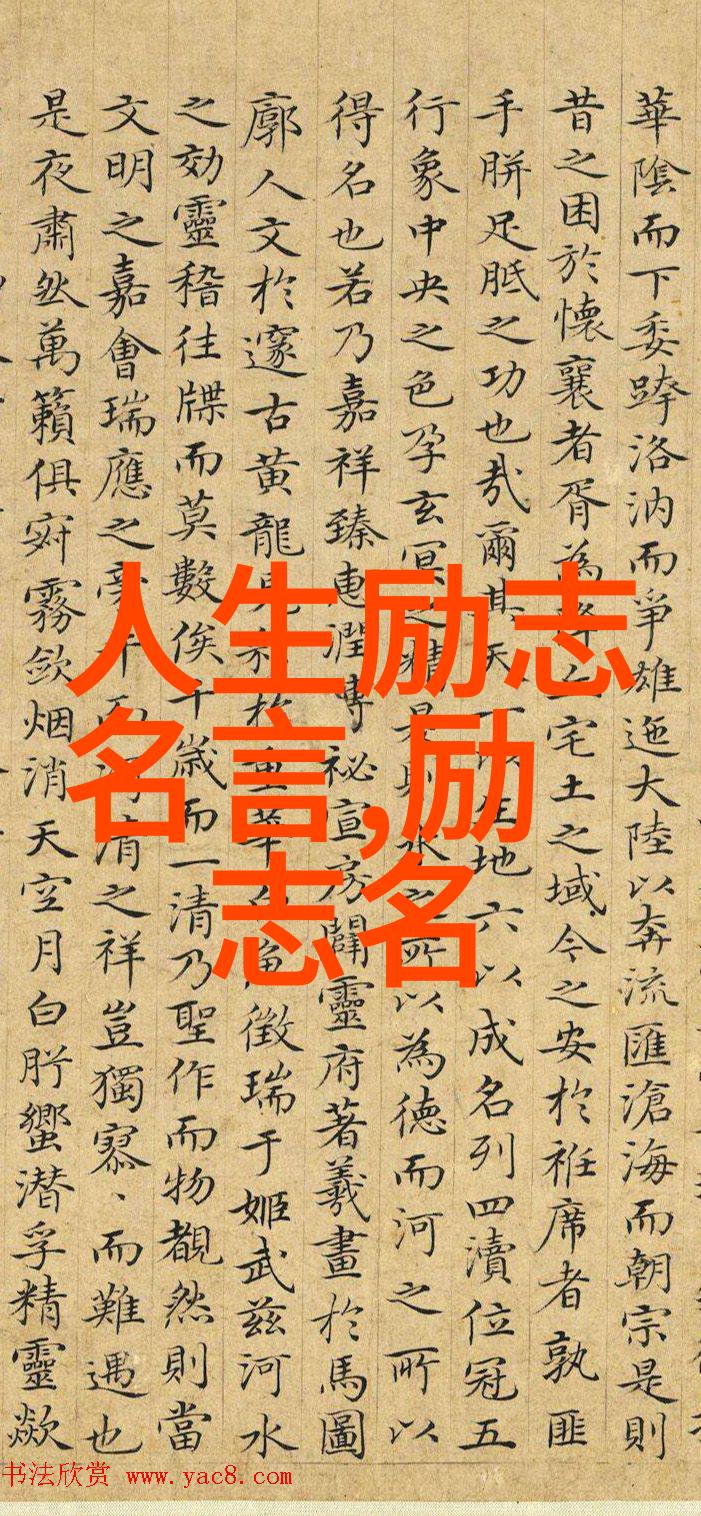 華陰而下委跨洛汭而爭雄迤大陸以奔流匯滄海而朝宗是則
昔之困於懷襄者胥為降丘宅土之域今之安於袵席者孰匪
手胼足胝之功也哉爾其天一以生地六以成名列四瀆位冠五
行象中央之色孕玄冥之精是則水之所以為德而河之所以
得名也若乃嘉祥臻惠潤博祕宣房闢靈府著羲畫於馬圖
廓人文於邃古黃龍見於重華白魚徵瑞于姬武兹河水
之効靈稽往牒而莫數俟千歲而一清乃聖作而物覩然則當
文明之嘉會瑞應之河清之祥豈獨寥、而難遇也
是夜肅然萬籟俱寂霧歛烟消天空月白肸蠁潜孚精靈歘
人生励志
名言,励
志名
书法欣赏 www.yac8.com